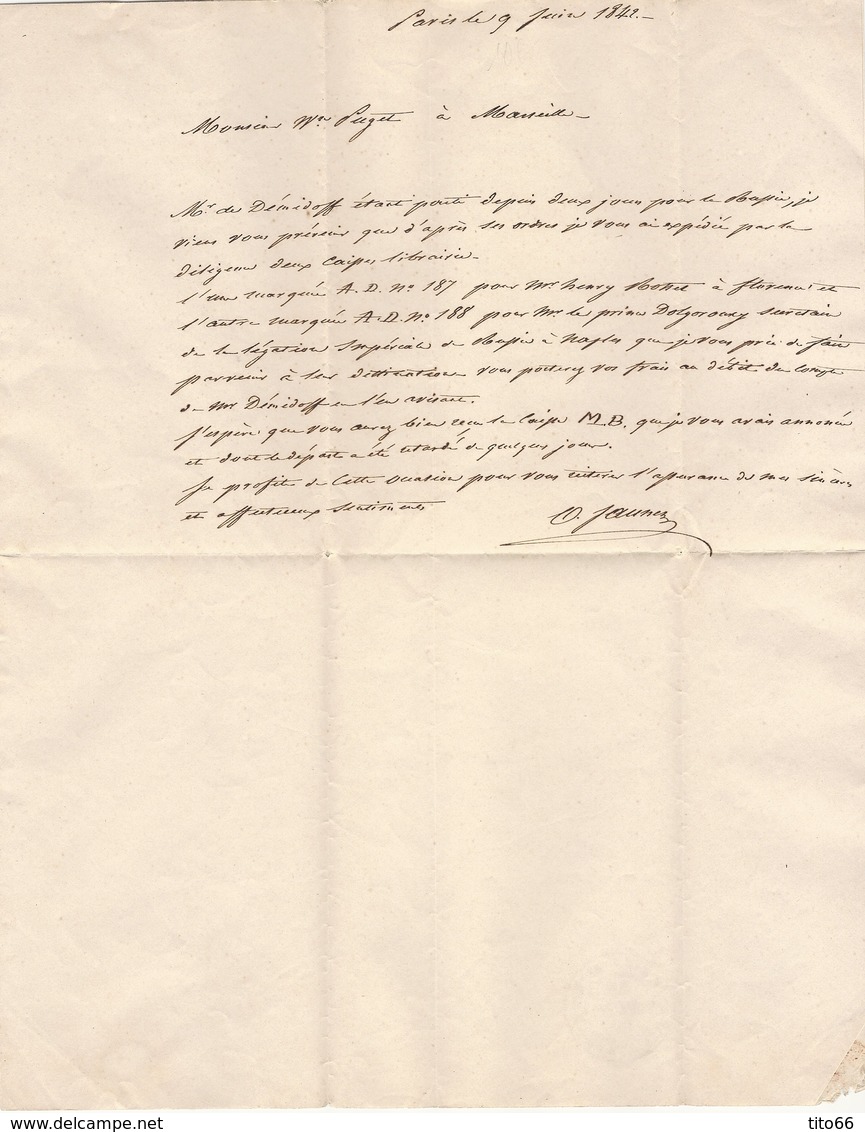 Paris le 9 Juin 1842.
Monsieur Wm Puget à Marseille
Mr. de Démidoff étant parti depuis deux jours pour la Russie, je
viens vous prévenir que d'après ses ordres je vous ai expédié par la
diligence deux Caisses librairie.
l'une marquée A.D. No 187 pour Mr. henry à florence et
l'autre marquée A.D. No. 188 pour Mr. le prince Dolgorouky secretaire
de la légation Impériale de Russie à Naples que je vous prie de faire
parvenir à leur destination vous porterez vos frais au débit du compte
de Mr Démidoff en l'en avisant.
J'espère que vous aurez bien recu la Caisse M.B. que je vous avais annoncée
et dont le départ a été retardé de quelques jours.
Je profite de Cette occasion pour vous réiterer l'assurance de mes sincères
et affectueux sentiments
O. Jaunez
delcampe.net
tito66